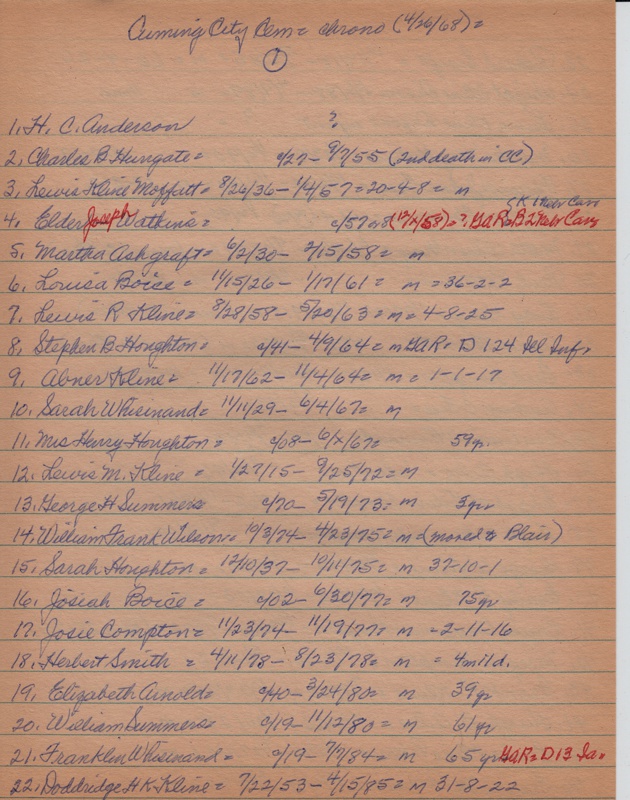 Cuming City Cem = chrono (4/26/68) =
1
1. H. C. Anderson ?
2. Charles B Hungate = c/27 - 9/7/55 (2nd death in CC)
3. Lewis Kline Moffatt = 8/26/36 - 1/4/57 = 20-4-8 = m
(K 1 Nebr Cav
4. Elder Joseph Watkins = c/57 or 8 (12/2/58) = ? GaR = B 2 Nebr Cav
5. Martha Ashgraft = 6/2/30 - 2/15/58 = m
6. Louisa Boise = 11/15/26 - 1/17/61 = m = 36-2-2
7. Lewis R Kline = 8/28/58 - 5/20/63 = m = 4-8-25
8. Stephen B Houghton = c/41 - 4/9/64 = m GaR = D 124 Ill Inf.
9. Abner Kline = 11/17/62 - 11/4/64 = m = 1-1-17
10. Sarah Whisinand = 11/11/29 - 6/4/67 = m
11. Mrs Harry Houghton = c/08 - 6/x/67 = 59 yr.
12. Lewis M. Kline = 1/27/15 - 9/25/72 = m
13. George H Summers c/70 - 5/19/73 = m 3 yr
14. William Frank Wilson = 10/3/74 - 4/23/75 = m = (moved to Blair)
15. Sarah Houghton = 12/10/37 - 10/11/75 = m 37-10-1
16. Josiah Boice = c/02 - 6/30/77 = m 75 yr
17. Josie Compton = 11/23/74 - 11/19/77 = m = 2-11-16
18. Herbert Smith = 4/11/78 - 8/23/78 = m = 4m 12d.
19. Elizabeth Arnold = c/40 - 3/24/80 = m 39 yr
20. William Summers = c/19 - 11/12/80 = m 61 yr
21. Franklin Whisinand = c/19 - 7/7/84 = m 65 yr GaR = D 13 Ia.
22. Doddridge H K Kline = 7/22/53 - 4/15/85 = m 31-8-22